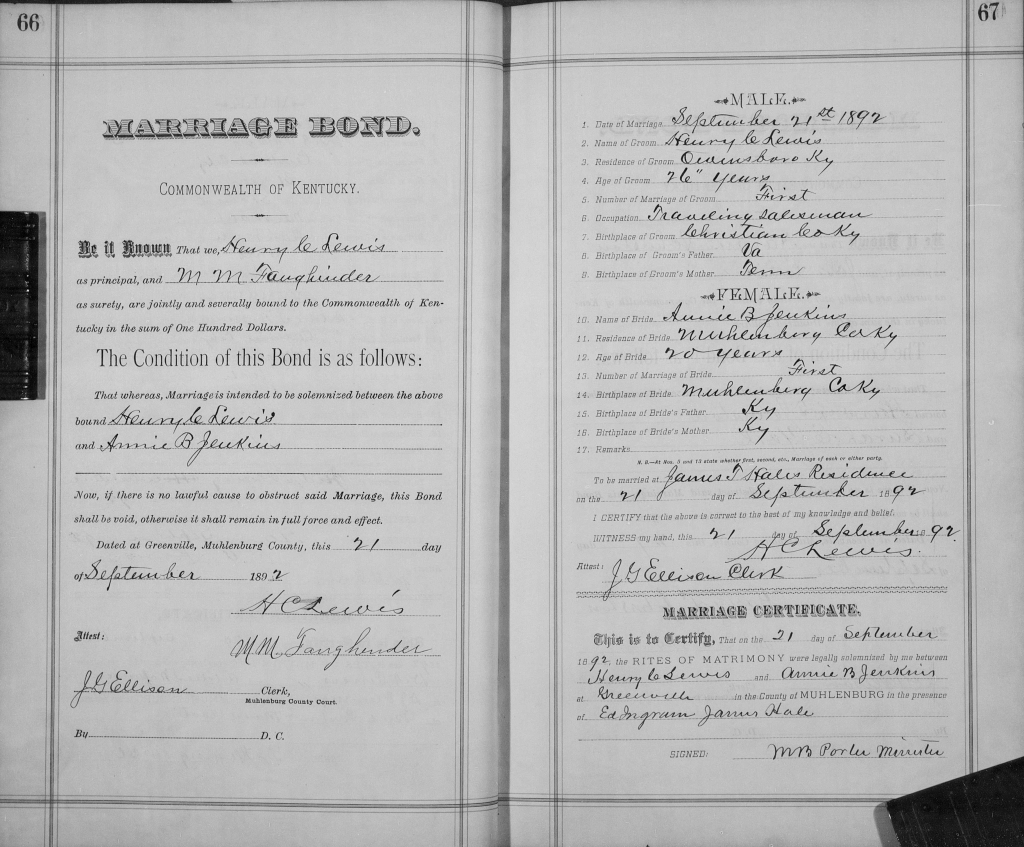 66
MARRIAGE BOND.
COMMONWEALTH OF KENTUCKY.
Be it Known That we, Henry C Lewis
as principal, and M M Faughinder
as surety, are jointly and severally bound to the Commonwealth of Ken-
tucky in the sum of One Hundred Dollars.
The Condition of this Bond is as follows:
That whereas, Marriage is intended to be solemnized between the above
bound Henry C Lewis
and Annie B Jenkins
Now, if there is no lawful cause to obstruct said Marriage, this Bond
shall be void, otherwise it shall remain in full force and effect.
Dated at Greenville, Muhlenburg County, this 21 day
of September 1892
H C Lewis
Attest:
M M Faughender
J G Ellison Clerk,
Muhlenburg County Court.
By D. C.
67
MALE.
1. Date of Marriage September 21st 1892
2. Name of Groom Henry C Lewis
3. Residence of Groom Owinsboro Ky
4. Age of Groom 26" years
5. Number of Marriage of Groom First
6. Occupation Traveling salesman
7. Birthplace of Groom Christian Co Ky
8. Birthplace of Groom's Father Va
9. Birthplace of Groom's Mother Tenn
FEMALE.
10. Name of Bride Annie B Jenkins
11. Residence of Bride Muhlenburg Co Ky
12. Age of Bride 20 years
13. Number of Marriage of Bride First
14. Birthplace of Bride Muhlenburg Co Ky
15. Birthplace of Bride's Father Ky
16. Birthplace of Bride's Mother Ky
17. Remarks
N. B.—At Nos. 5 and 13 state whether first, second, etc., Marriage of each or either party.
To be married at James T Hales Residence
on the 21 day of September 1892
I CERTIFY that the above is correct to the best of my knowledge and belief.
WITNESS my hand, this 21 day of September 1892.
H C Lewis.
Attest: J G Ellison Clerk
MARRIAGE CERTIFICATE.
This is to Certify, That on the 21 day of September
1892, the RITES OF MATRIMONY were legally solemnized by me between
Henry C Lewis and Annie B Jenkins
at Greenville in the County of MUHLENBURG in the presence
of Ed Ingram James Hale
SIGNED: M B Porter Minister